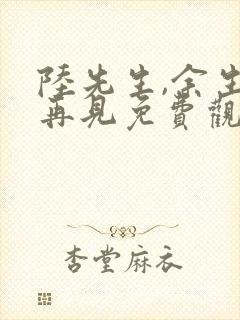 陸先生,余生
再見免費觀
杏堂麻衣